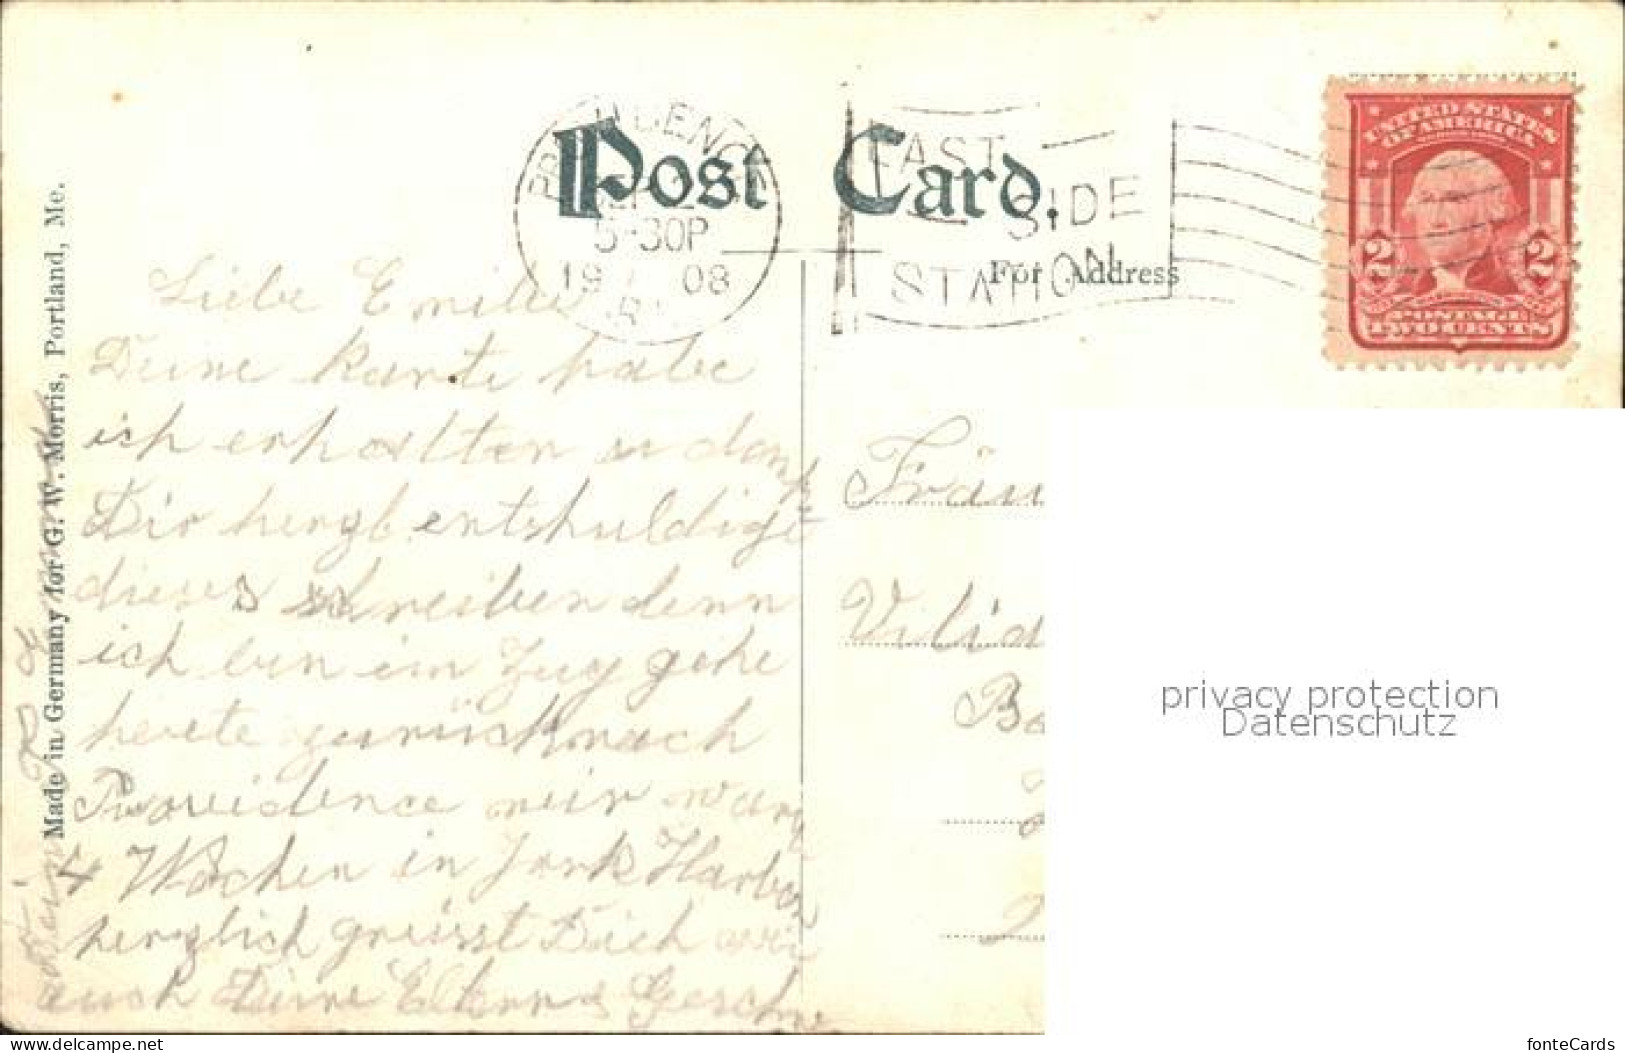 Post Card.
For Address
PROVIDENCE
5-30P
1908
R.I.
EAST
SIDE
STATION
UNITED STATES
OF AMERICA
2 2
POSTAGE
TWO CENTS
Made in Germany for G. W. Morris, Portland, Me.
Liebe Emilie
Deine Karte habe
ich erhalten u dank
Dir herzl. entshuldige
dieses schreiben denn
ich bin im Zug gehe
heute zurück nach
Providence wir war
4 Wochen in York Harbor
herzlich grüsst Dich wie
auch Deine Eltern & Geschw
Dein
Fräu
Ba
privacy protection
Datenschutz
Delcampe.net
fonteCards